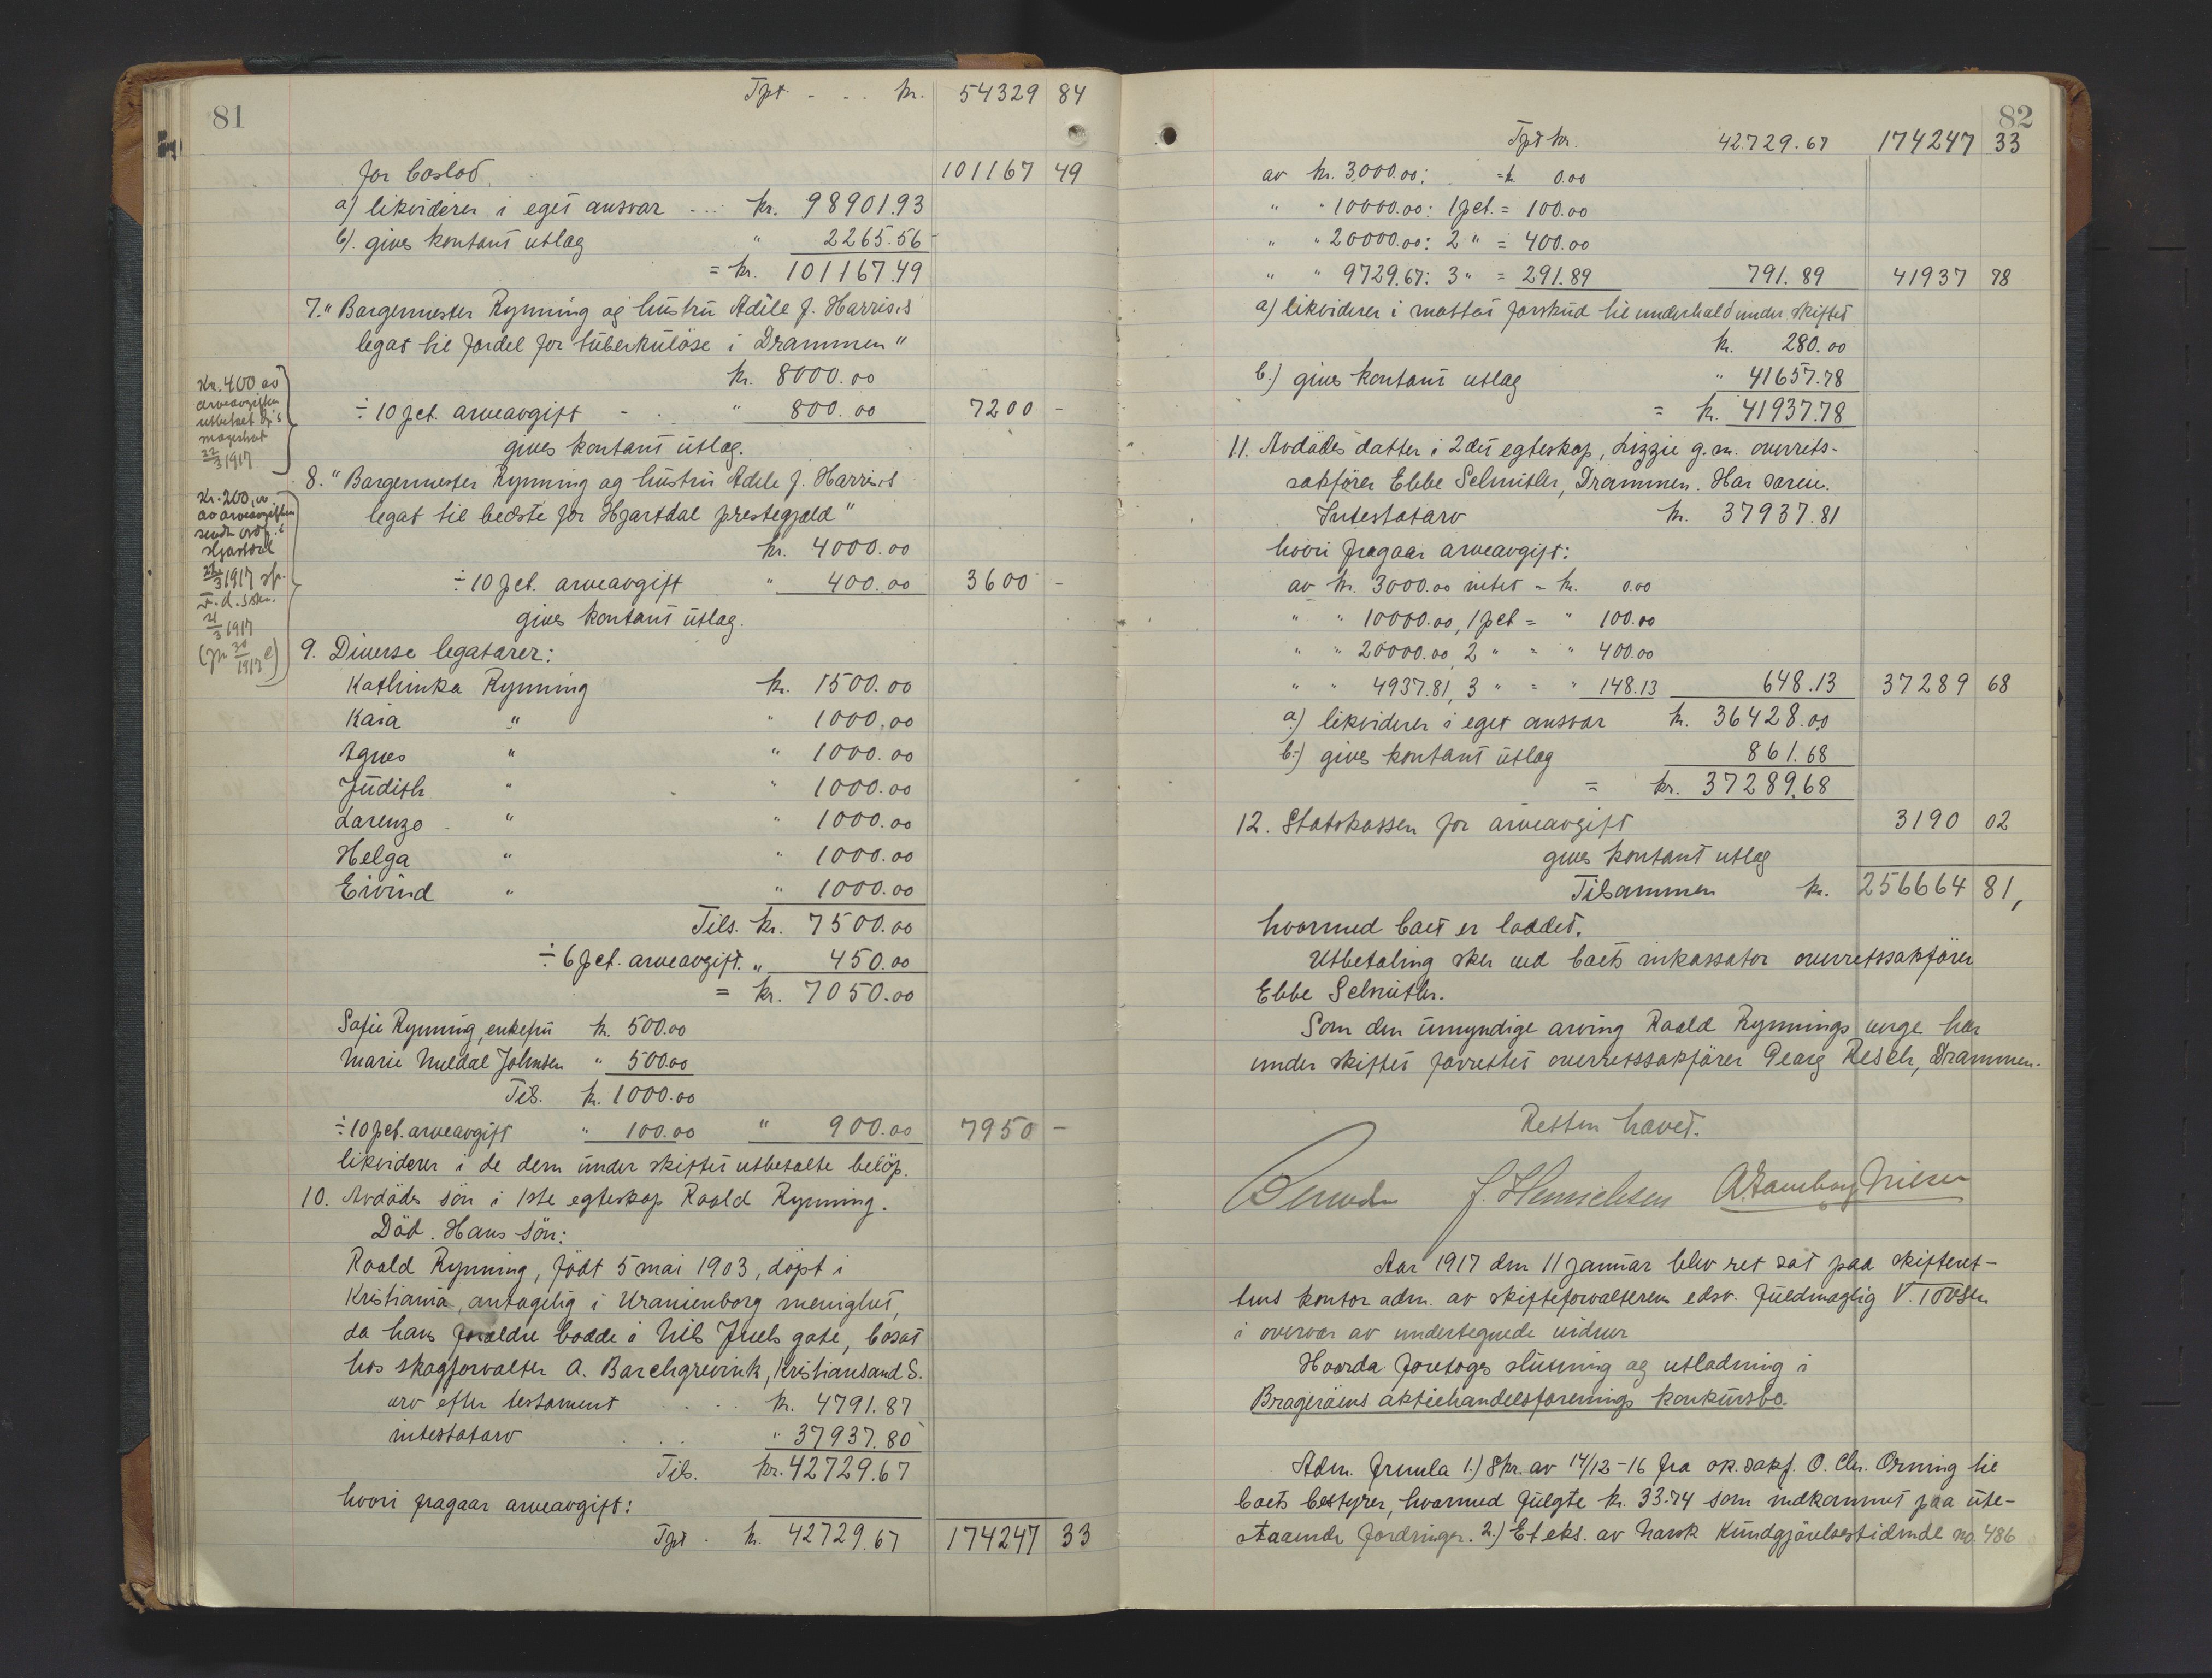 81
Tpt. - .. kr. 54329 84
for boslod. 101167 49
a) likviderer i eget ansvar ... kr. 98901.93
b). gives kontant utlæg " 2265.56
= kr. 101167.49
7. "Borgermester Rynning og hustru Adele J. Harris,s
legat til fordel for tuberkuløse i Drammen"
kr. 8000.00
÷ 10 pct. arveavgift - . " 800.00 7200 -
gives kontant utlæg.
Kr. 400 av
arveavgiften
utbetalt
magistrat
22/3 1917
8. "Borgermester Rynning og hustru Adele J. Harris,s
legat til bedste for Hjartdal prestegjæld"
kr. 4000.00
÷ 10 pct. arveavgift " 400.00 3600 -
gives kontant utlæg.
Kr. 200,00
av arveavgiften
sendt ordf. i
Hjartdal
1917
21/3 1917
9. Diverse legatarer:
Kathinka Rynning kr. 1500.00
Kaia " " 1000.00
Agnes " " 1000.00
Judith " " 1000.00
Lorenzo - " " 1000.00
Helga " " 1000.00
Eivind " " 1000.00
Tils. kr. 7500.00
÷ 6 pct. arveavgift. " 450.00
= kr. 7050.00
Sofie Rynning, enkefru kr. 500.00
Marie Meldal Johnsen " 500.00
Tils. kr. 1000.00
÷ 10 pct. arveavgift " 100.00 " 900.00 7950 -
likviderer i de dem under skiftet utbetalte beløp.
10. Avdødes søn i 1ste egteskap Roald Rynning.
Død. Hans søn:
Roald Rynning, født 5 mai 1903, døpt i
Kristiania, antagelig i Uranienborg menighet,
da hans forældre bodde i Nils Juels gate, bosat
hos skogforvalter A. Barchgrevink, Kristiansand S.
arv efter testament .... kr. 4791.87
intestatarv . .. " 37937.80
Tils. kr. 42729.67
hvori fragaar arveavgift:
Tpt . kr. 42729.67 174247 33
82
Tpt kr. 42729.67 174247 33
av kr. 3000.00: = kr. 0.00
" " 10000.00: 1 pct. = 100.00
" " 20000.00: 2 " = 400.00
" " 9729.67: 3 " = 291.89 791.89 41937 78
a) likviderer i mottat forskud til underhold under skiftet
kr. 280.00
b.) gives kontant utlæg " 41657.78
= kr. 41937.78
11. Avdødes datter i 2det egteskap, Lizzie g.m. overrets-
sakfører Ebbe Schnitler, Drammen. Har særeie.
Intestatarv kr. 37937.81
hvori fragaar arveavgift:
av kr. 3000.00 intet = kr. 0.00
" " 10000.00, 1 pct = " 100.00
" " 20000.00, 2 " = " 400.00
" " 4937.81, 3 " = " 148.13 648.13 37289 68
a) likviderer i eget ansvar kr. 36428.00
b.) gives kontant utlæg 861.68
= kr. 37289.68
12. Statskassen for arveavgift 3190 02
gives kontant utlæg
Tilsammen kr. 256664 81,
hvormed boet er loddet.
Utbetaling sker ved boets inkassator overretssakfører
Ebbe Schnitler.
Som den umyndige arving Roald Rynnings verge har
under skiftet forrettet overretssakfører Georg Resch, Drammen.
Retten hævet.
J. Henrichsen Nilsen
Aar 1917 den 11 januar blev ret sat paa skifteret-
tens kontor adm. av skifteforvalteren edsv. fuldmægtig V. Tovsen
i overvær av undertegnede vidner
Hvorda foretoges slutning og utlodning i
Bragerøens aktiehandelsforenings konkursbo.
Adm. fremla 1.) Skr. av 14/12-16 fra o.r.sakf. O. Chr. Orning til
boets bestyrer, hvormed fulgte kr. 33.74 som indkommet paa ute-
staaende fordringer. 2.) Et eks. av Norsk Kundgjørelsestidende no. 486